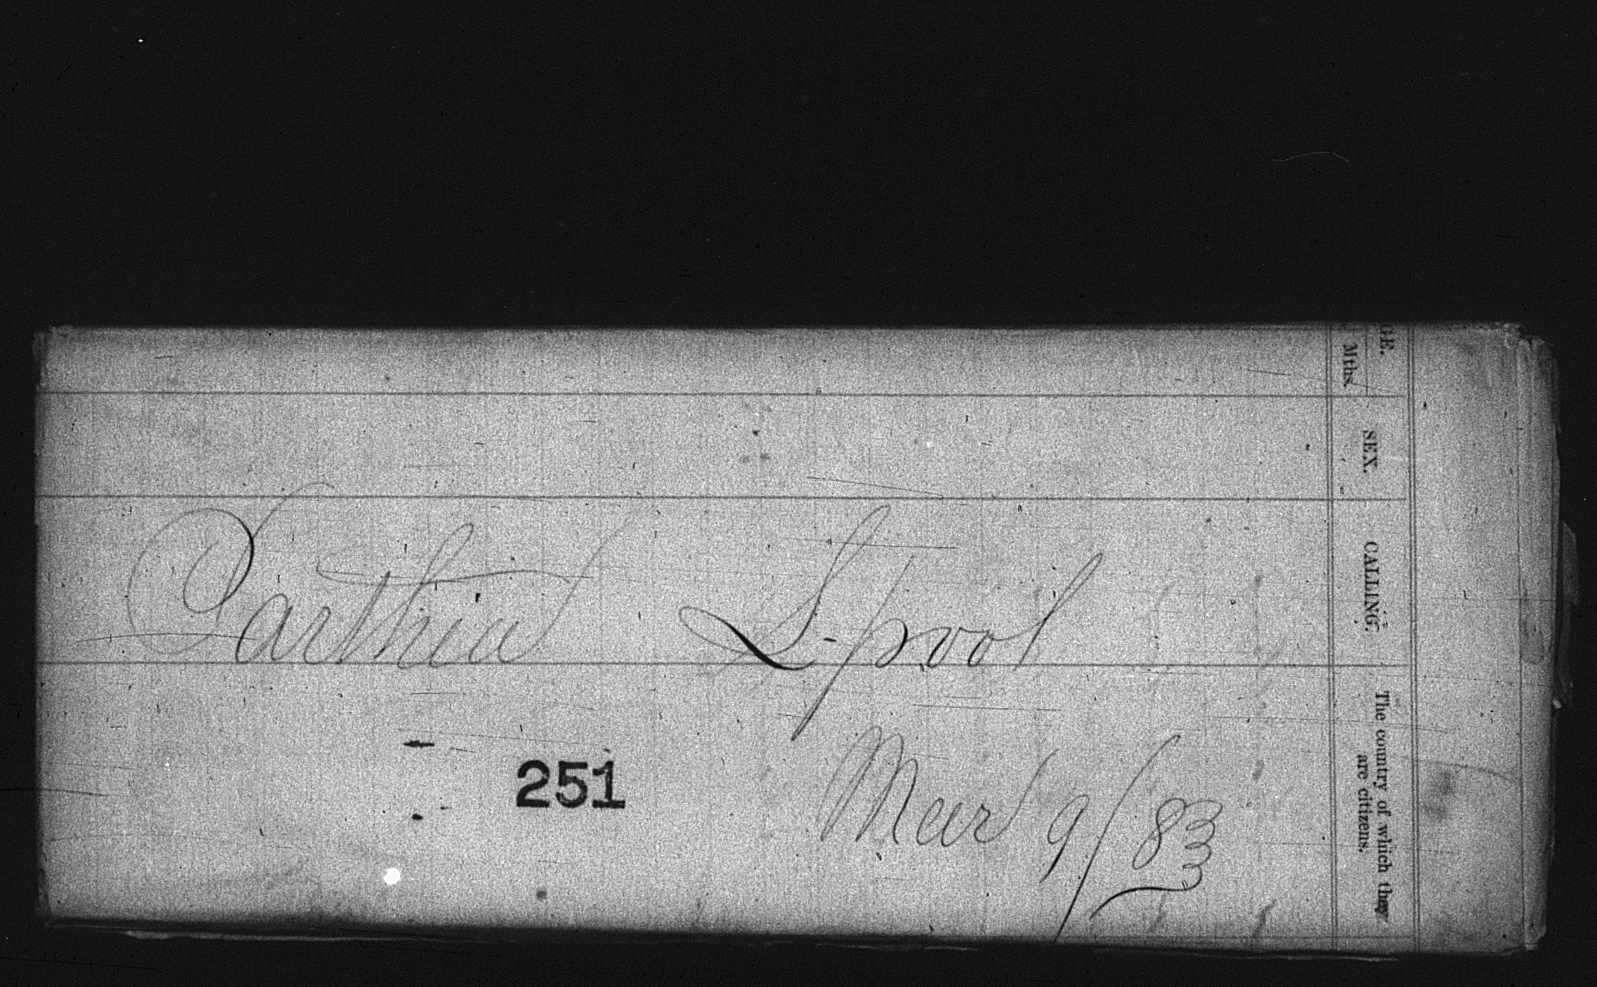 Parthia L-pool
251
Mar 9/83
GE.
Mths.
SEX.
CALLING.
The country of which they
are citizens.